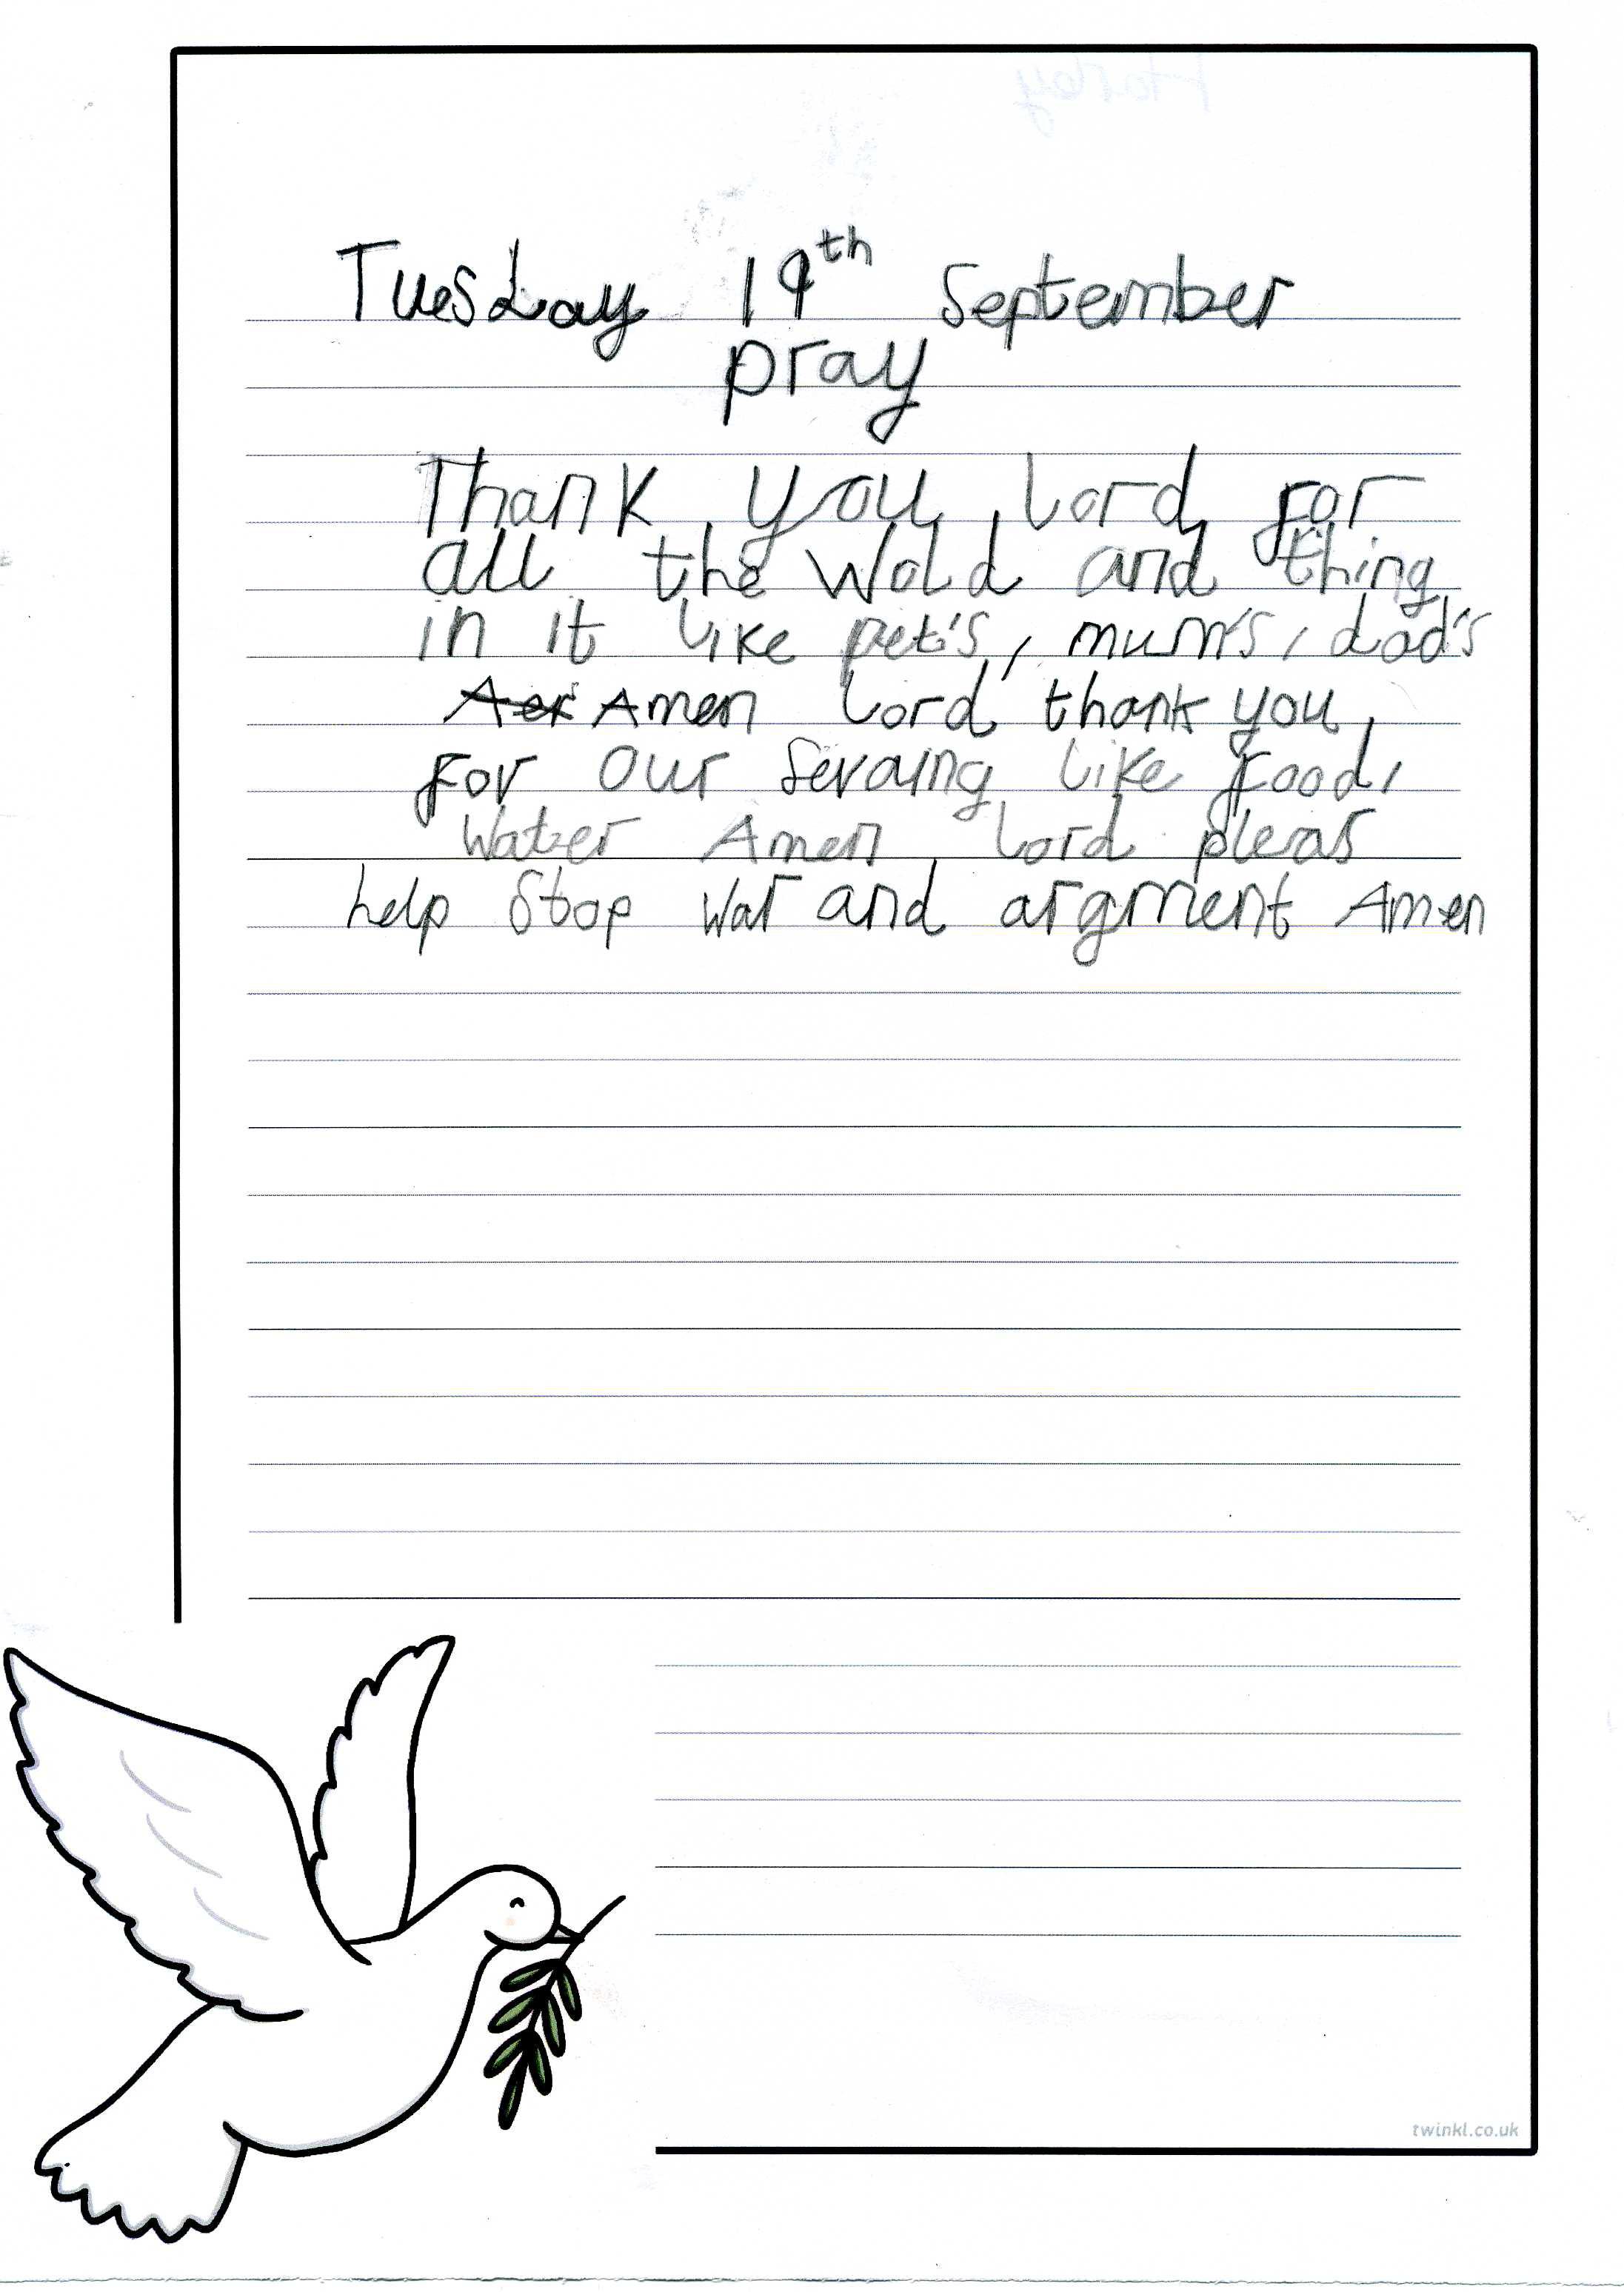 Tuesday 19th September
pray
Thank you lord for
all the wold and thing
in it like pet's, mum's, dad's
Aer Amen lord thank you
for our servaing like food,
water Amen lord pleas
help stop war and argment Amen
twinkl.co.uk